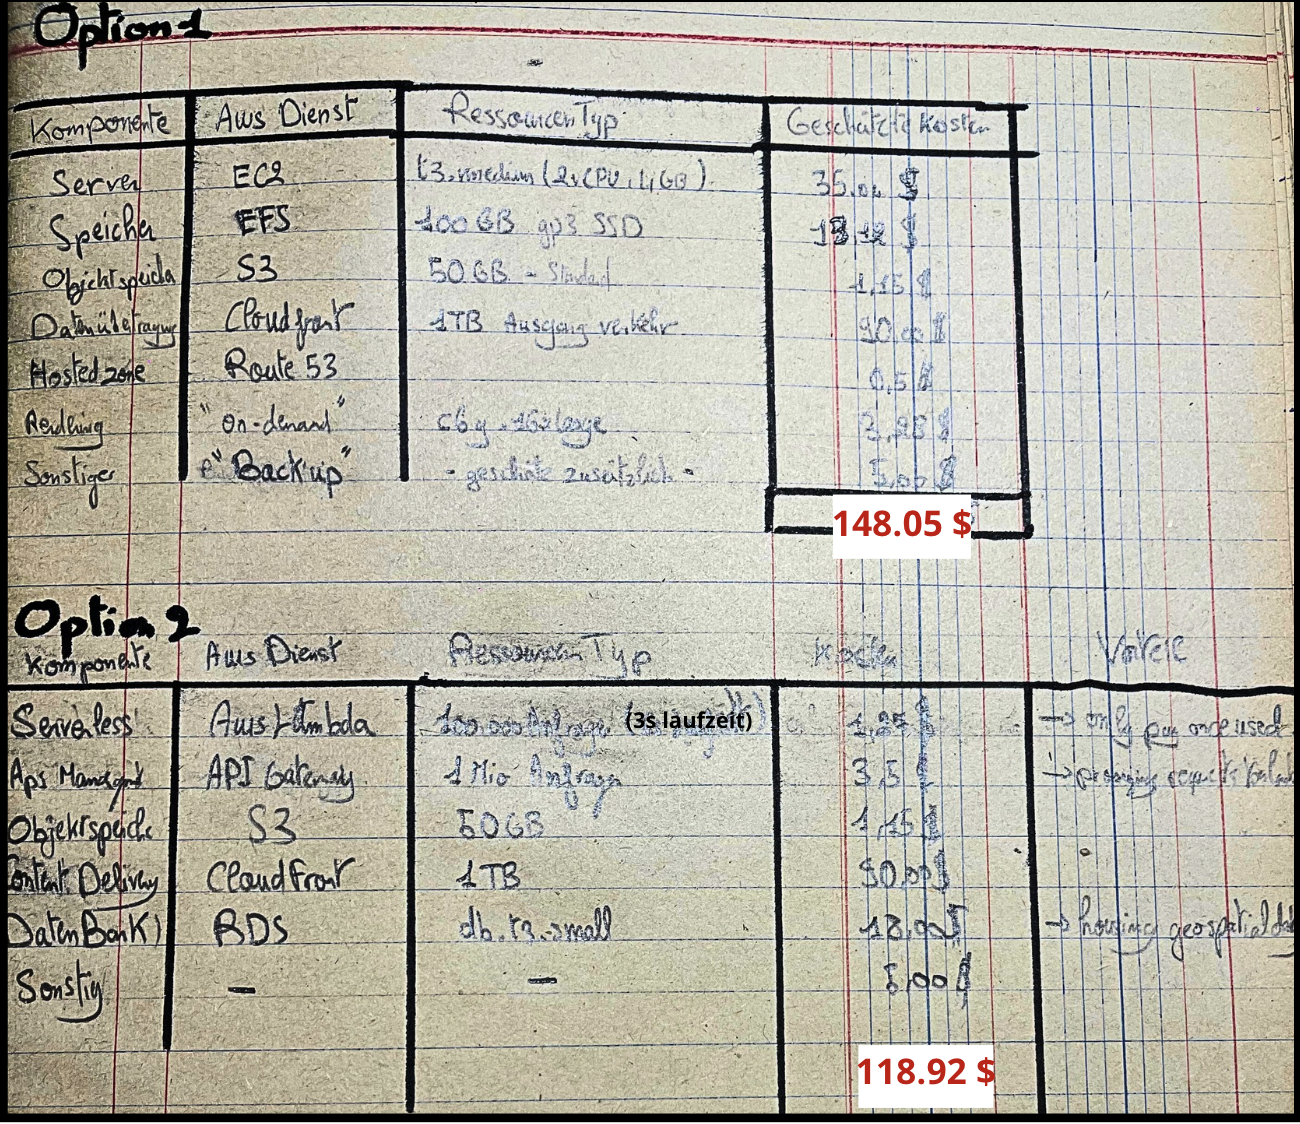 Option 1
Komponente Aws Dienst RessourcenTyp Geschätzte Kosten
Server EC2 t3.medium (2vCPU, 4GB) 35.04 $
Speicher EFS 100 GB gp3 SSD $
Objektspeicher S3 50GB - Standard 1,15 $
Datenübertragung Cloudfront 1TB Ausgang verkehr 90,00 $
Hosted zone Route 53 0,5 $
"on-demand" c6g.16xlarge 3,25 $
Sonstiger "Back up" - geschätzte zusätzlich - 5,00 $
148.05 $
Option 2
Komponente Aws Dienst RessourcenTyp Kosten Vorteil
Serverless Aws Lambda 100.000 Anfrage (3s laufzeit) 1,25 $ → only pay once used
API Gateway 1 Mio Anfrage 3,5 $ →
Objektspeiche S3 50GB 1,15 $
Content Delivery CloudFront 1TB 90,00 $
DatenBank) RDS db.t3.small 18,02 $ → housing geospatial
Sonstig - - 5,00 $
118.92 $